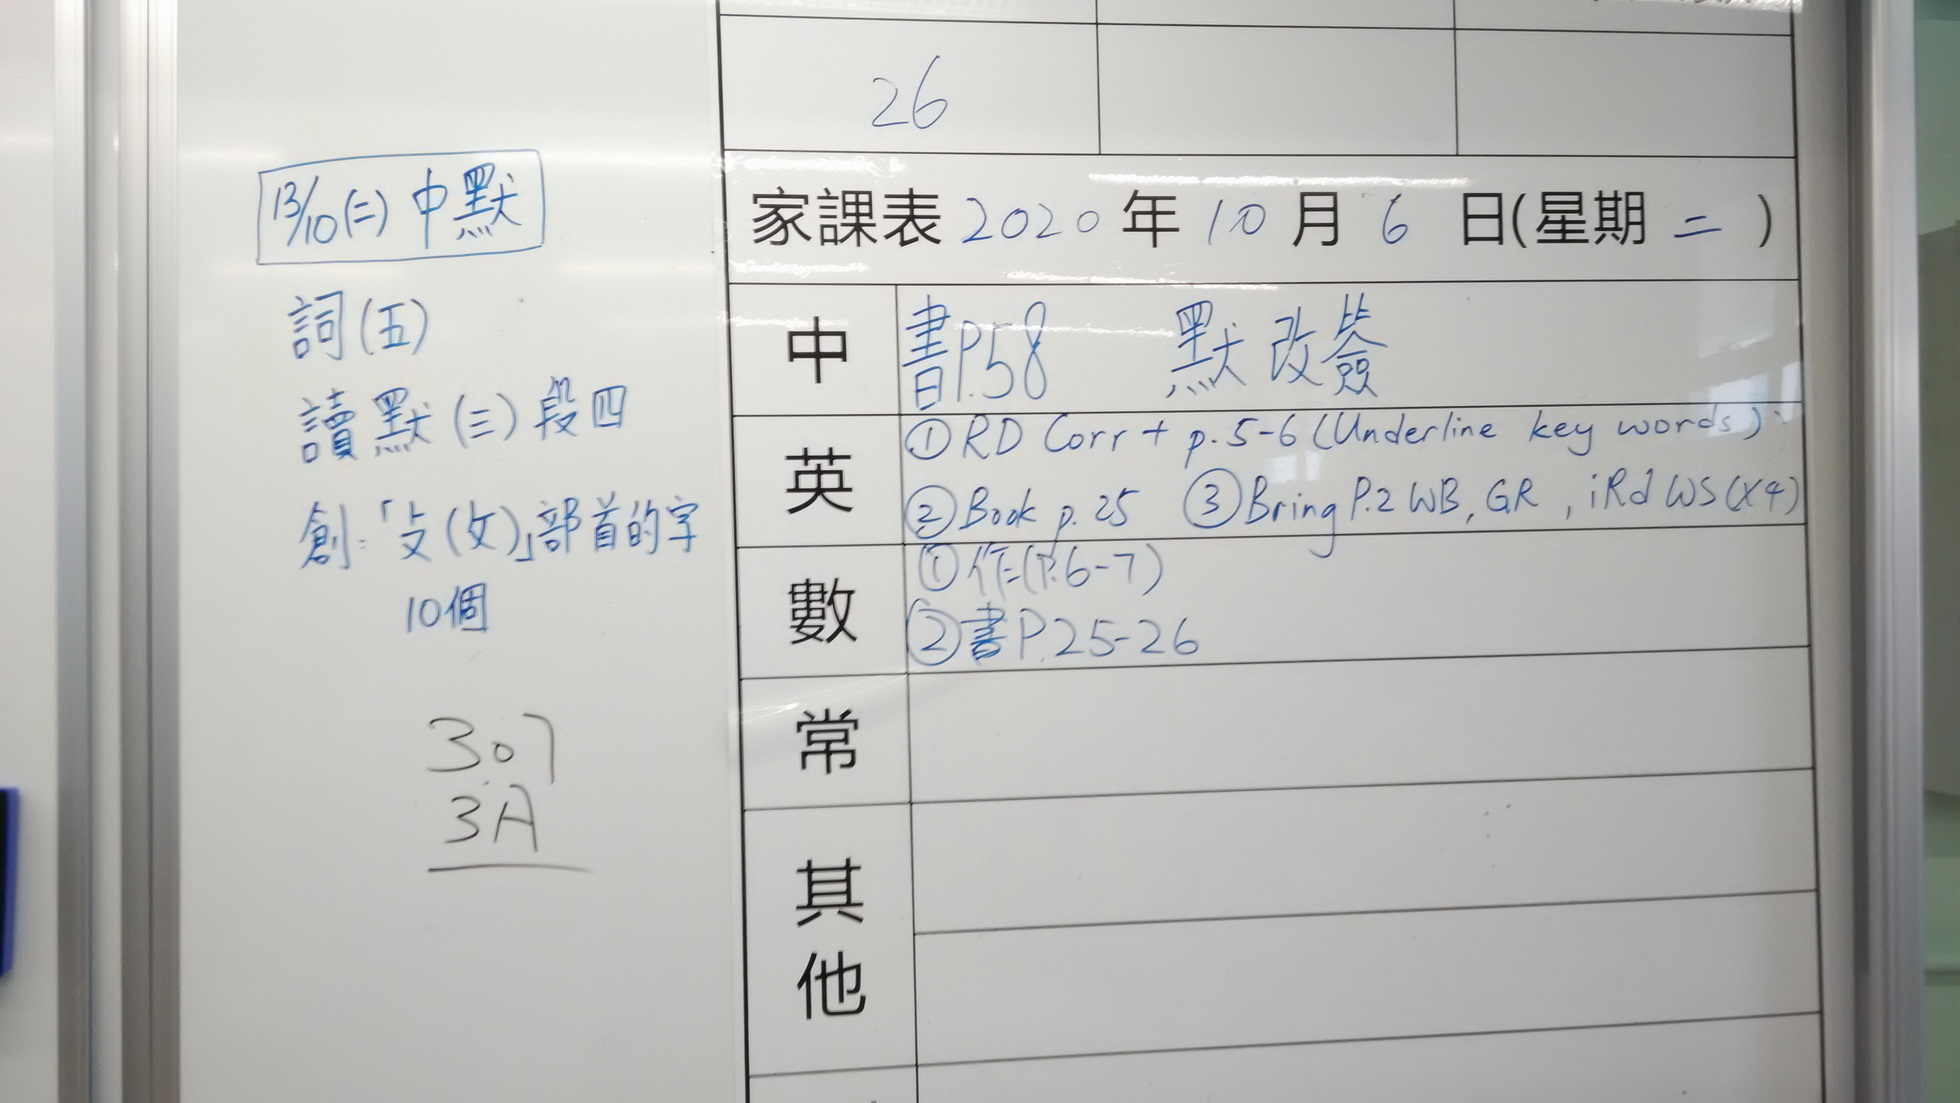 26
家課表 2020 年 10 月 6 日(星期 二 )
中 書P.58 默改簽
英 ①RD Corr + p.5-6 (Underline key words)
②Book p.25 ③Bring P.2 WB, GR, iRd WS(x4)
數 ①作(P.6-7)
②書P.25-26
常
其
他
13/10(二) 中默
詞(五)
讀默(三)段四
創:「攴(攵)」部首的字
10個
307
3A